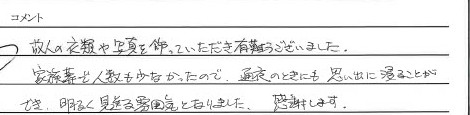 コメント
故人の衣類や写真を飾っていただき有難うございました。
家族葬で人数も少なかったので、通夜のときにも思い出に浸ることが
でき、明るく見送る雰囲気となりました。感謝します。